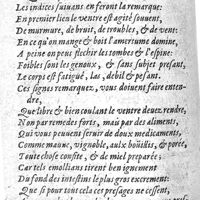 Les indices suiuans en feront la remarque:
En premier lieu le ventre est agité souuent,
De murmure, de bruit, de troubles, & de vent:
En ce qu'on mange & boit l'amertume domine,
A peine on peut flechir les tombes & l'espine:
Foibles sont les genoux, & sans subjet pesant,
Le corps est fatigué, las, debil & pesant.
Ces signes remarquez, vous doiuent faire enten-
dre,
Que libre & bien coulant le ventre deuez rendre,
Non par remedes forts, mais par des aliments,
Qui vous peuuent seruir de doux medicaments,
Comme mauue, vignable, aulx boüillis, & poree,
Toute chose confite, & de miel preparée;
Cartels emollians tirent benignement
Du fond des intestins le plus gros excrement:
Que si pour tout cela cet presages ne cessent,